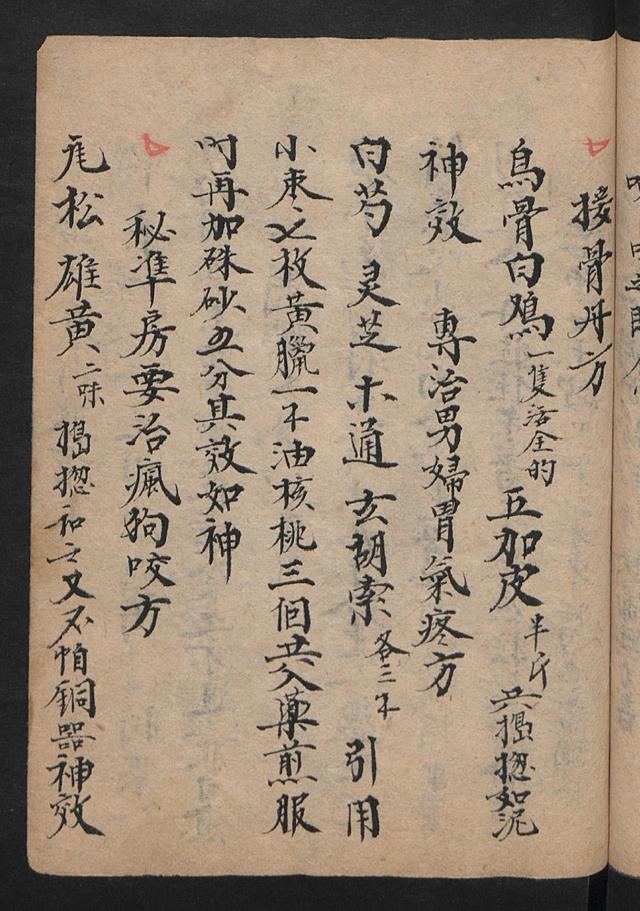 接骨丹方
烏骨白鳮一隻活全的 五加皮半斤 共搗摠如泥
神效 專治男婦胃氣疼方
白芍 灵芝 木通 玄胡索各三不 引用
小枣七枚黃臘一不油核桃三個共入藥煎服
时再加硃砂五分其效如神
秘準房要治瘋狗咬方
尾松 雄黃二味 搗摠和之又不怕銅器神效